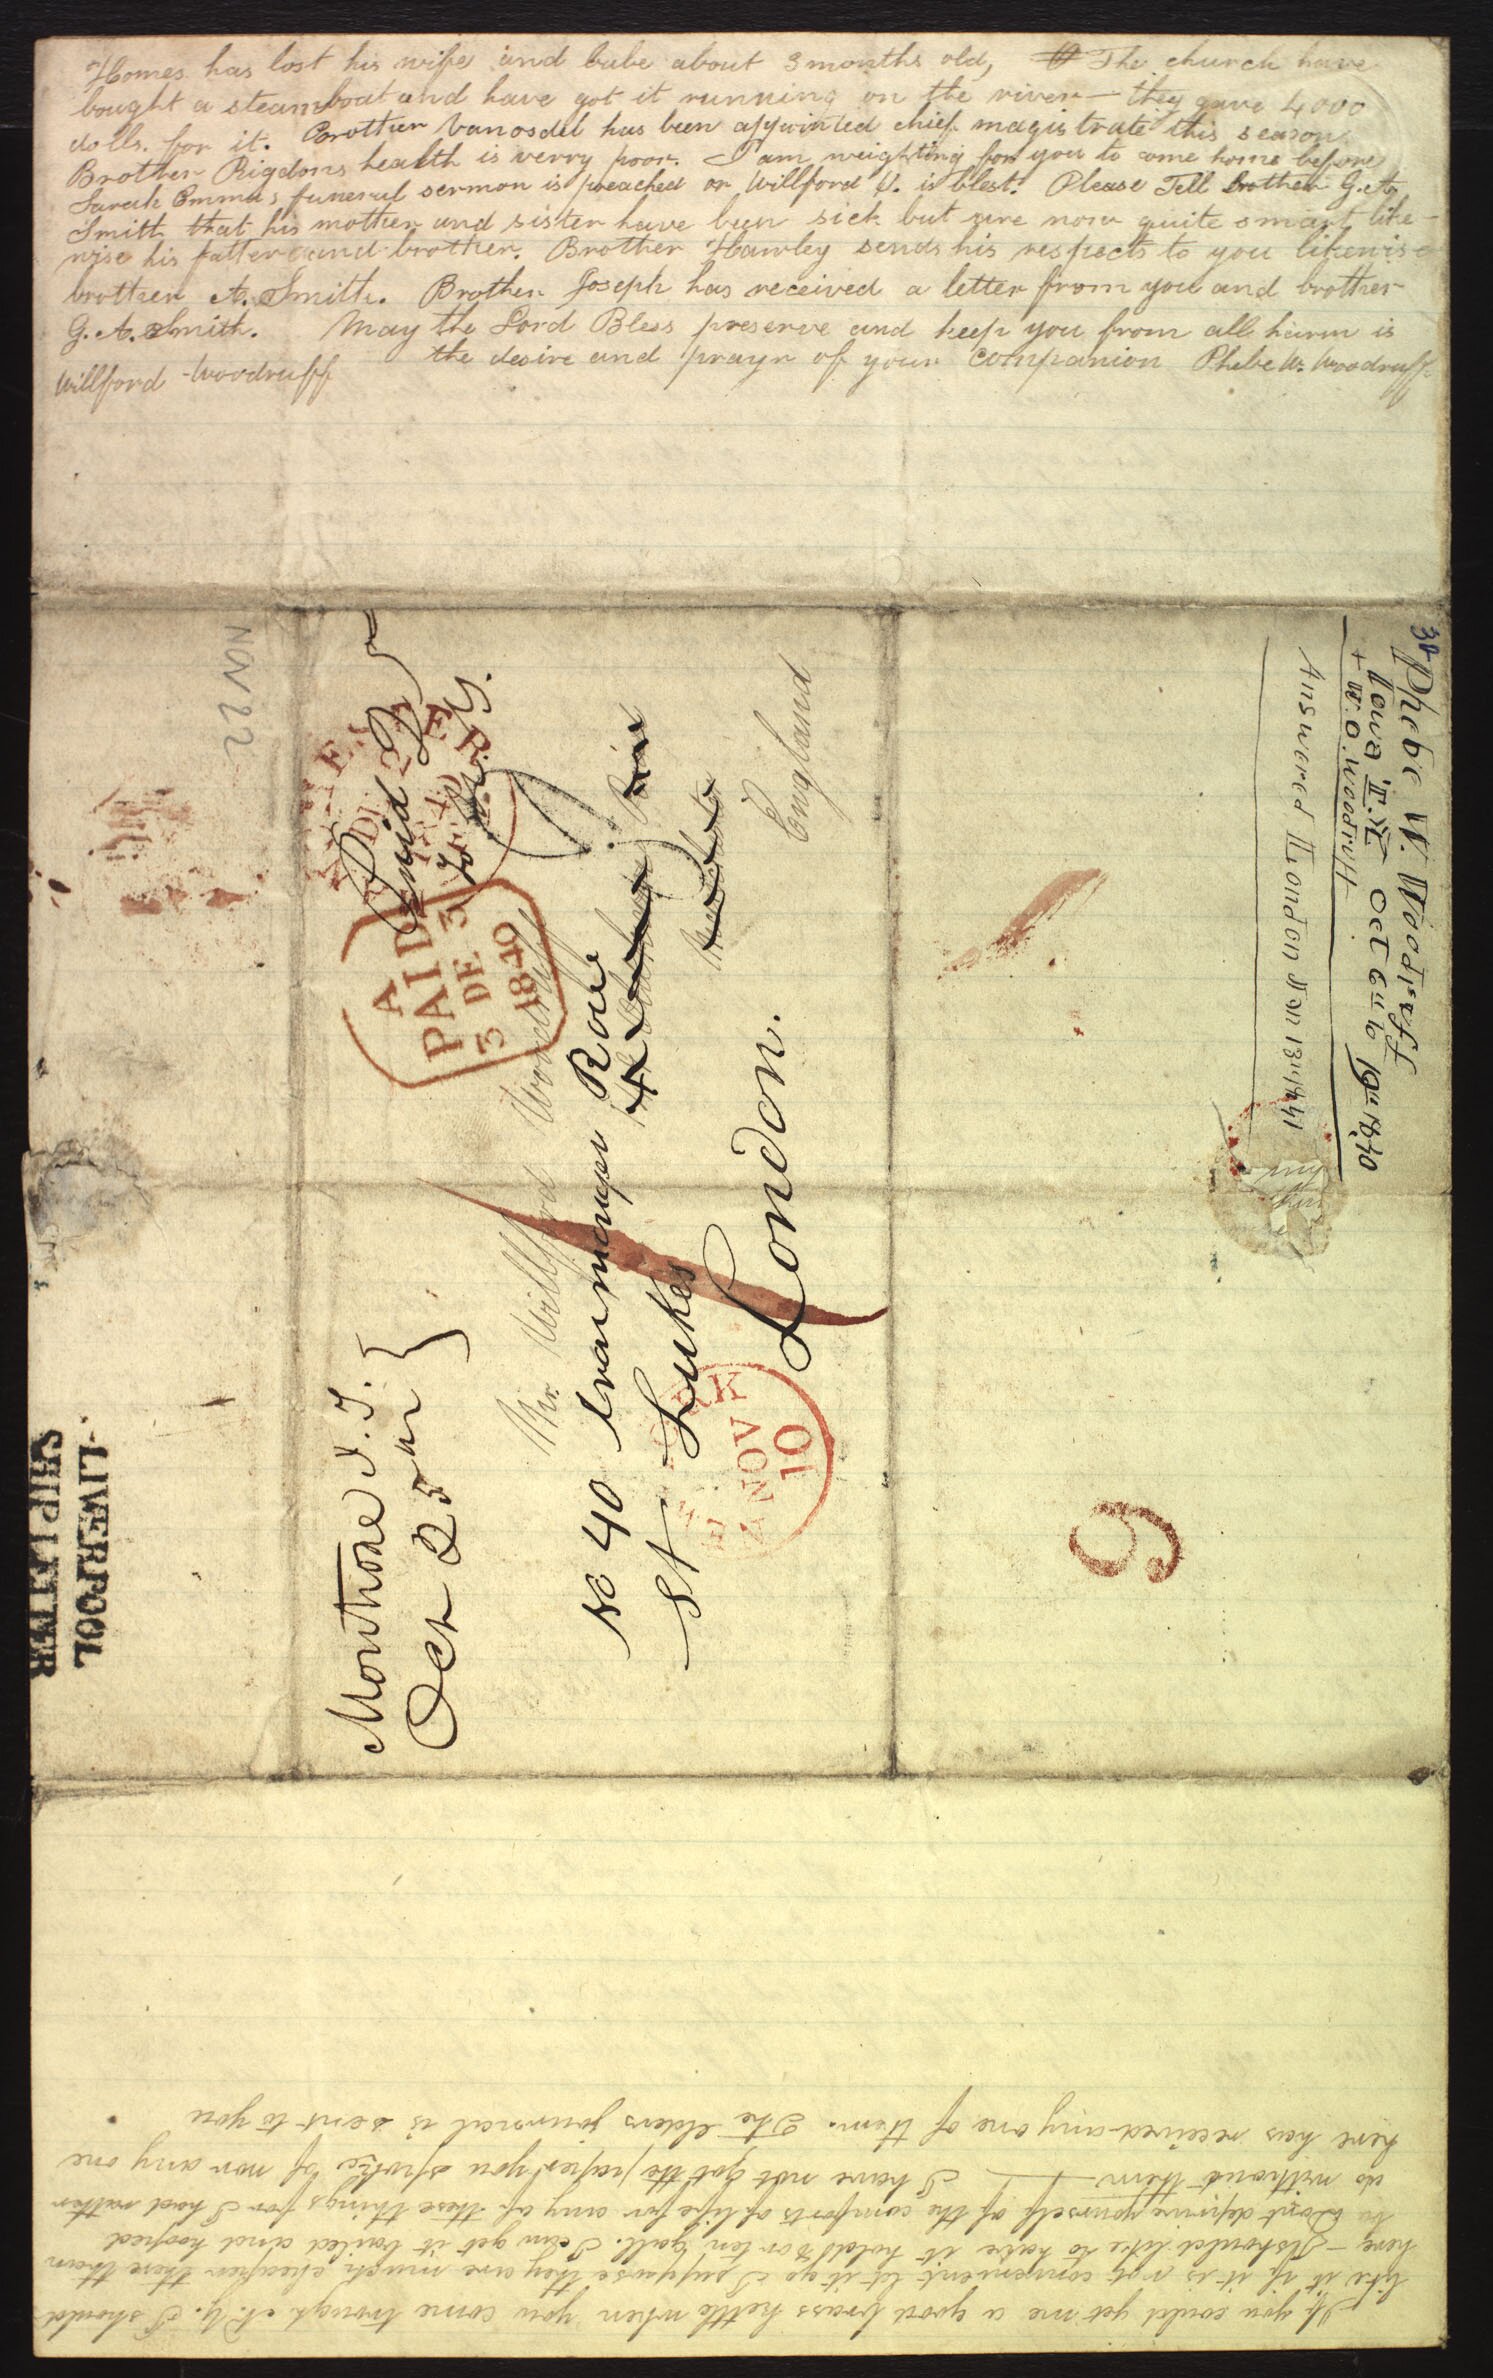 Homes has lost his wife and babe about 3 months old, The church have
bought a steamboat and have got it running on the river — they gave 4000
dolls. for it. Brother Vanosdel has been appointed chief magistrate this season
Brother Rigdons health is verry poor. I am weighting for you to come home before
Sarah Emmas funeral sermon is preached or Willford O. is blest. Please Tell brother G. A.
Smith that his mother and sister have been sick but are now quite smart like-
wise his father and brother. Brother Hawley sends his respects to you likewise
brother A. Smith. Brother Joseph has received a letter from you and brother
G. A. Smith. May the Lord Bless preserve and keep you from all harm is
the desire and prayr of your companion Phebe W. Woodruff
Willford Woodruff
NOV 22
Montrose I. T.
Oct 25th
Paid
to N. Y.
A
PAID
3 DE 3
1840
Mr. Willford Woodruff
No 40 Ironmonger Row
St Lukes
London.
England
NOV
10
LIVERPOOL
SHIP LETTER
9
38
Phebe W. Woodruff
Iowa I.T. Oct 6th to 19th 1840
+ W.O. Woodruff
Answered London Jan 13th 1841
If you could get me a good brass kettle when you come trough N. Y. I should
like it if it is not convenient let it go I suppose they are much cheaper there than
here — I should like to have it hold 8 or ten gall. I can get it bailed and hooped
Dont deprive yourself of the comforts of life for any of these things for I had rather
do without them — I have not got the papers you spoke of nor any one
here has received any one of them. The Elders journal is sent to you